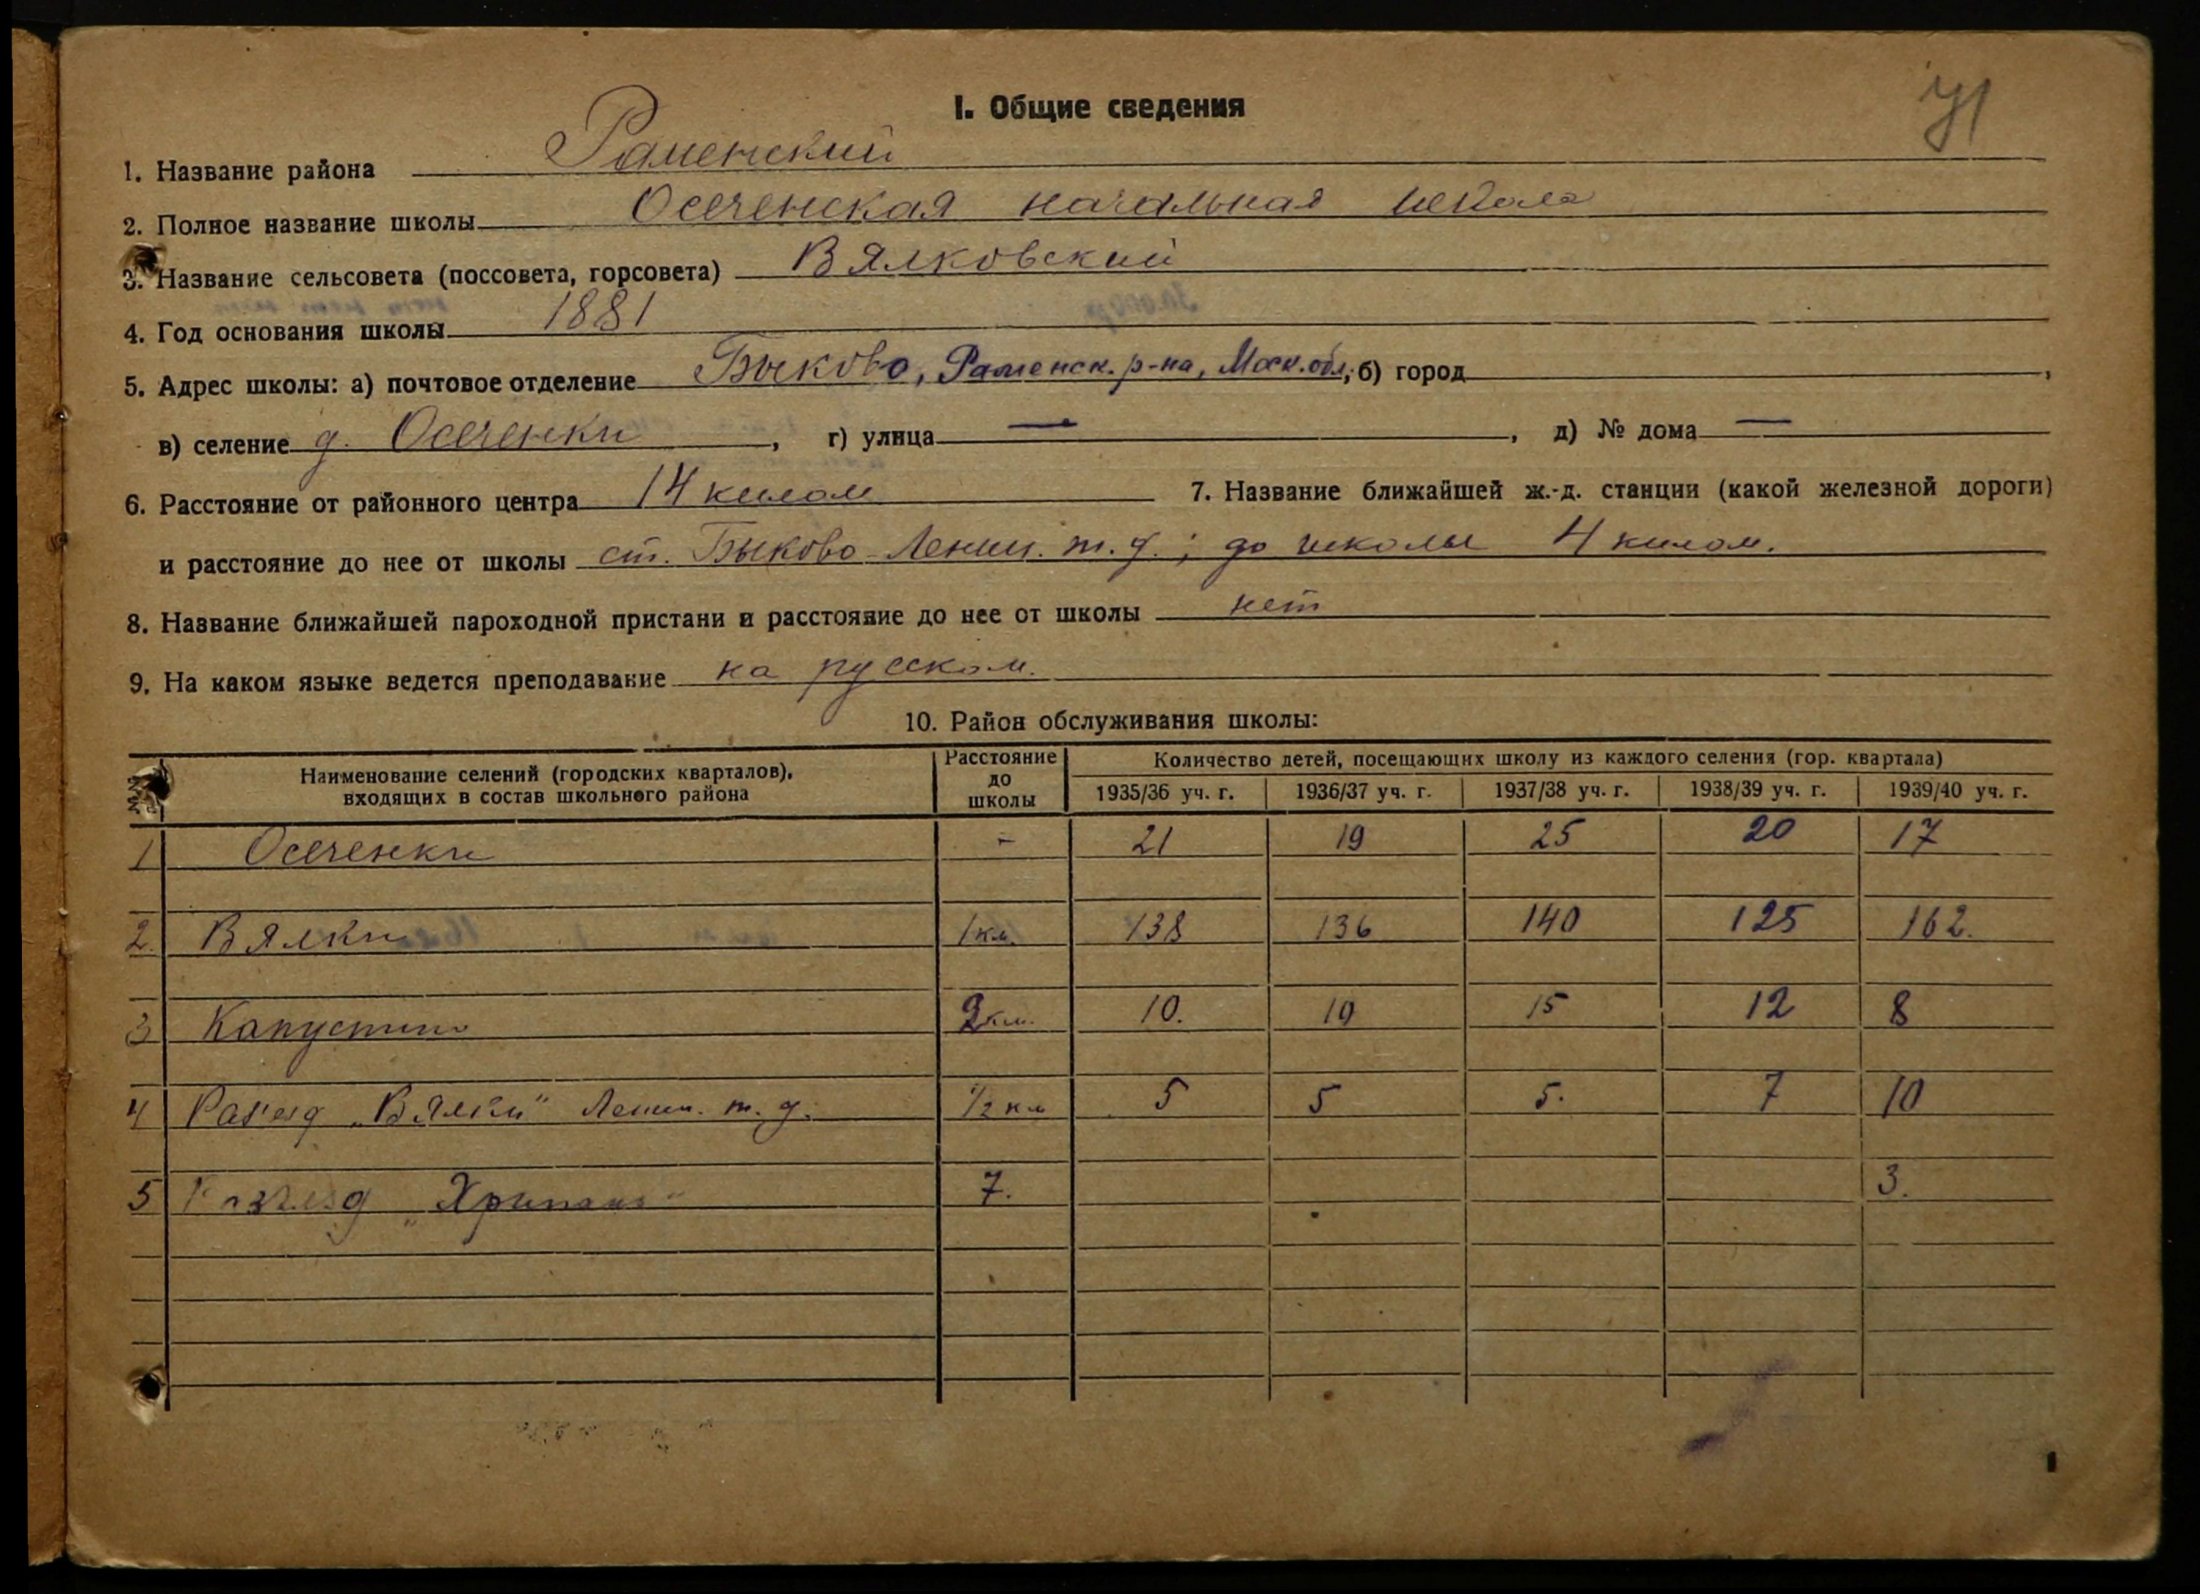 I. Общие сведения
1. Название района Раменский
2. Полное название школы Осеченская начальная школа
3. Название сельсовета (поссовета, горсовета) Вялковский
4. Год основания школы 1881
5. Адрес школы: а) почтовое отделение Быково, Раменск. р-на, Моск. обл; б) город ,
в) селение д. Осеченки , г) улица — , д) № дома —
6. Расстояние от районного центра 14 килом 7. Название ближайшей ж.-д. станции (какой железной дороги)
и расстояние до нее от школы ст. Быково Ленин. ж. д.; до школы 4 килом.
8. Название ближайшей пароходной пристани и расстояние до нее от школы нет
9. На каком языке ведется преподавание на русском.
10. Район обслуживания школы:
Наименование селений (городских кварталов), входящих в состав школьного района Расстояние до школы Количество детей, посещающих школу из каждого селения (гор. квартала)
1935/36 уч. г. 1936/37 уч. г. 1937/38 уч. г. 1938/39 уч. г. 1939/40 уч. г.
1 Осеченки - 21 19 25 20 17
2. Вялки 1 км. 138 136 140 125 162.
3 Капустино 2 км. 10. 10 15 12 8
4 Раз'езд „Вялки" Ленин. ж. д. 1/2 км 5 5 5. 7 10
5 Разъезд „Хрипань" 7. 3.
1